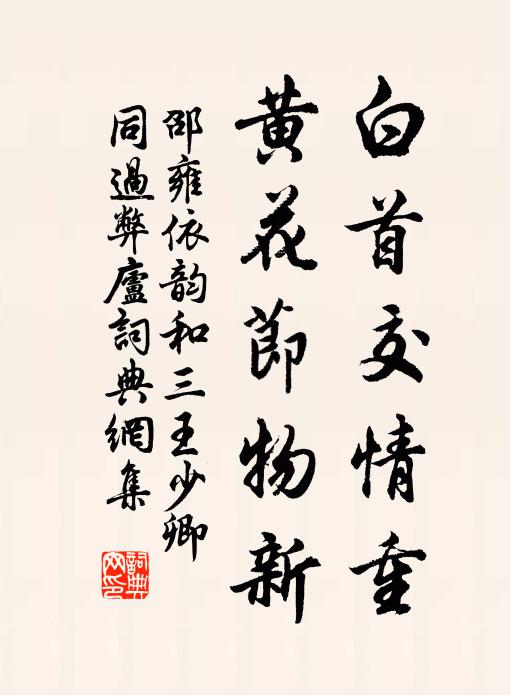 白首交情重
黃花節物新
邵雍依韵和三王少卿
同過弊廬詞典網集
詞典
网印